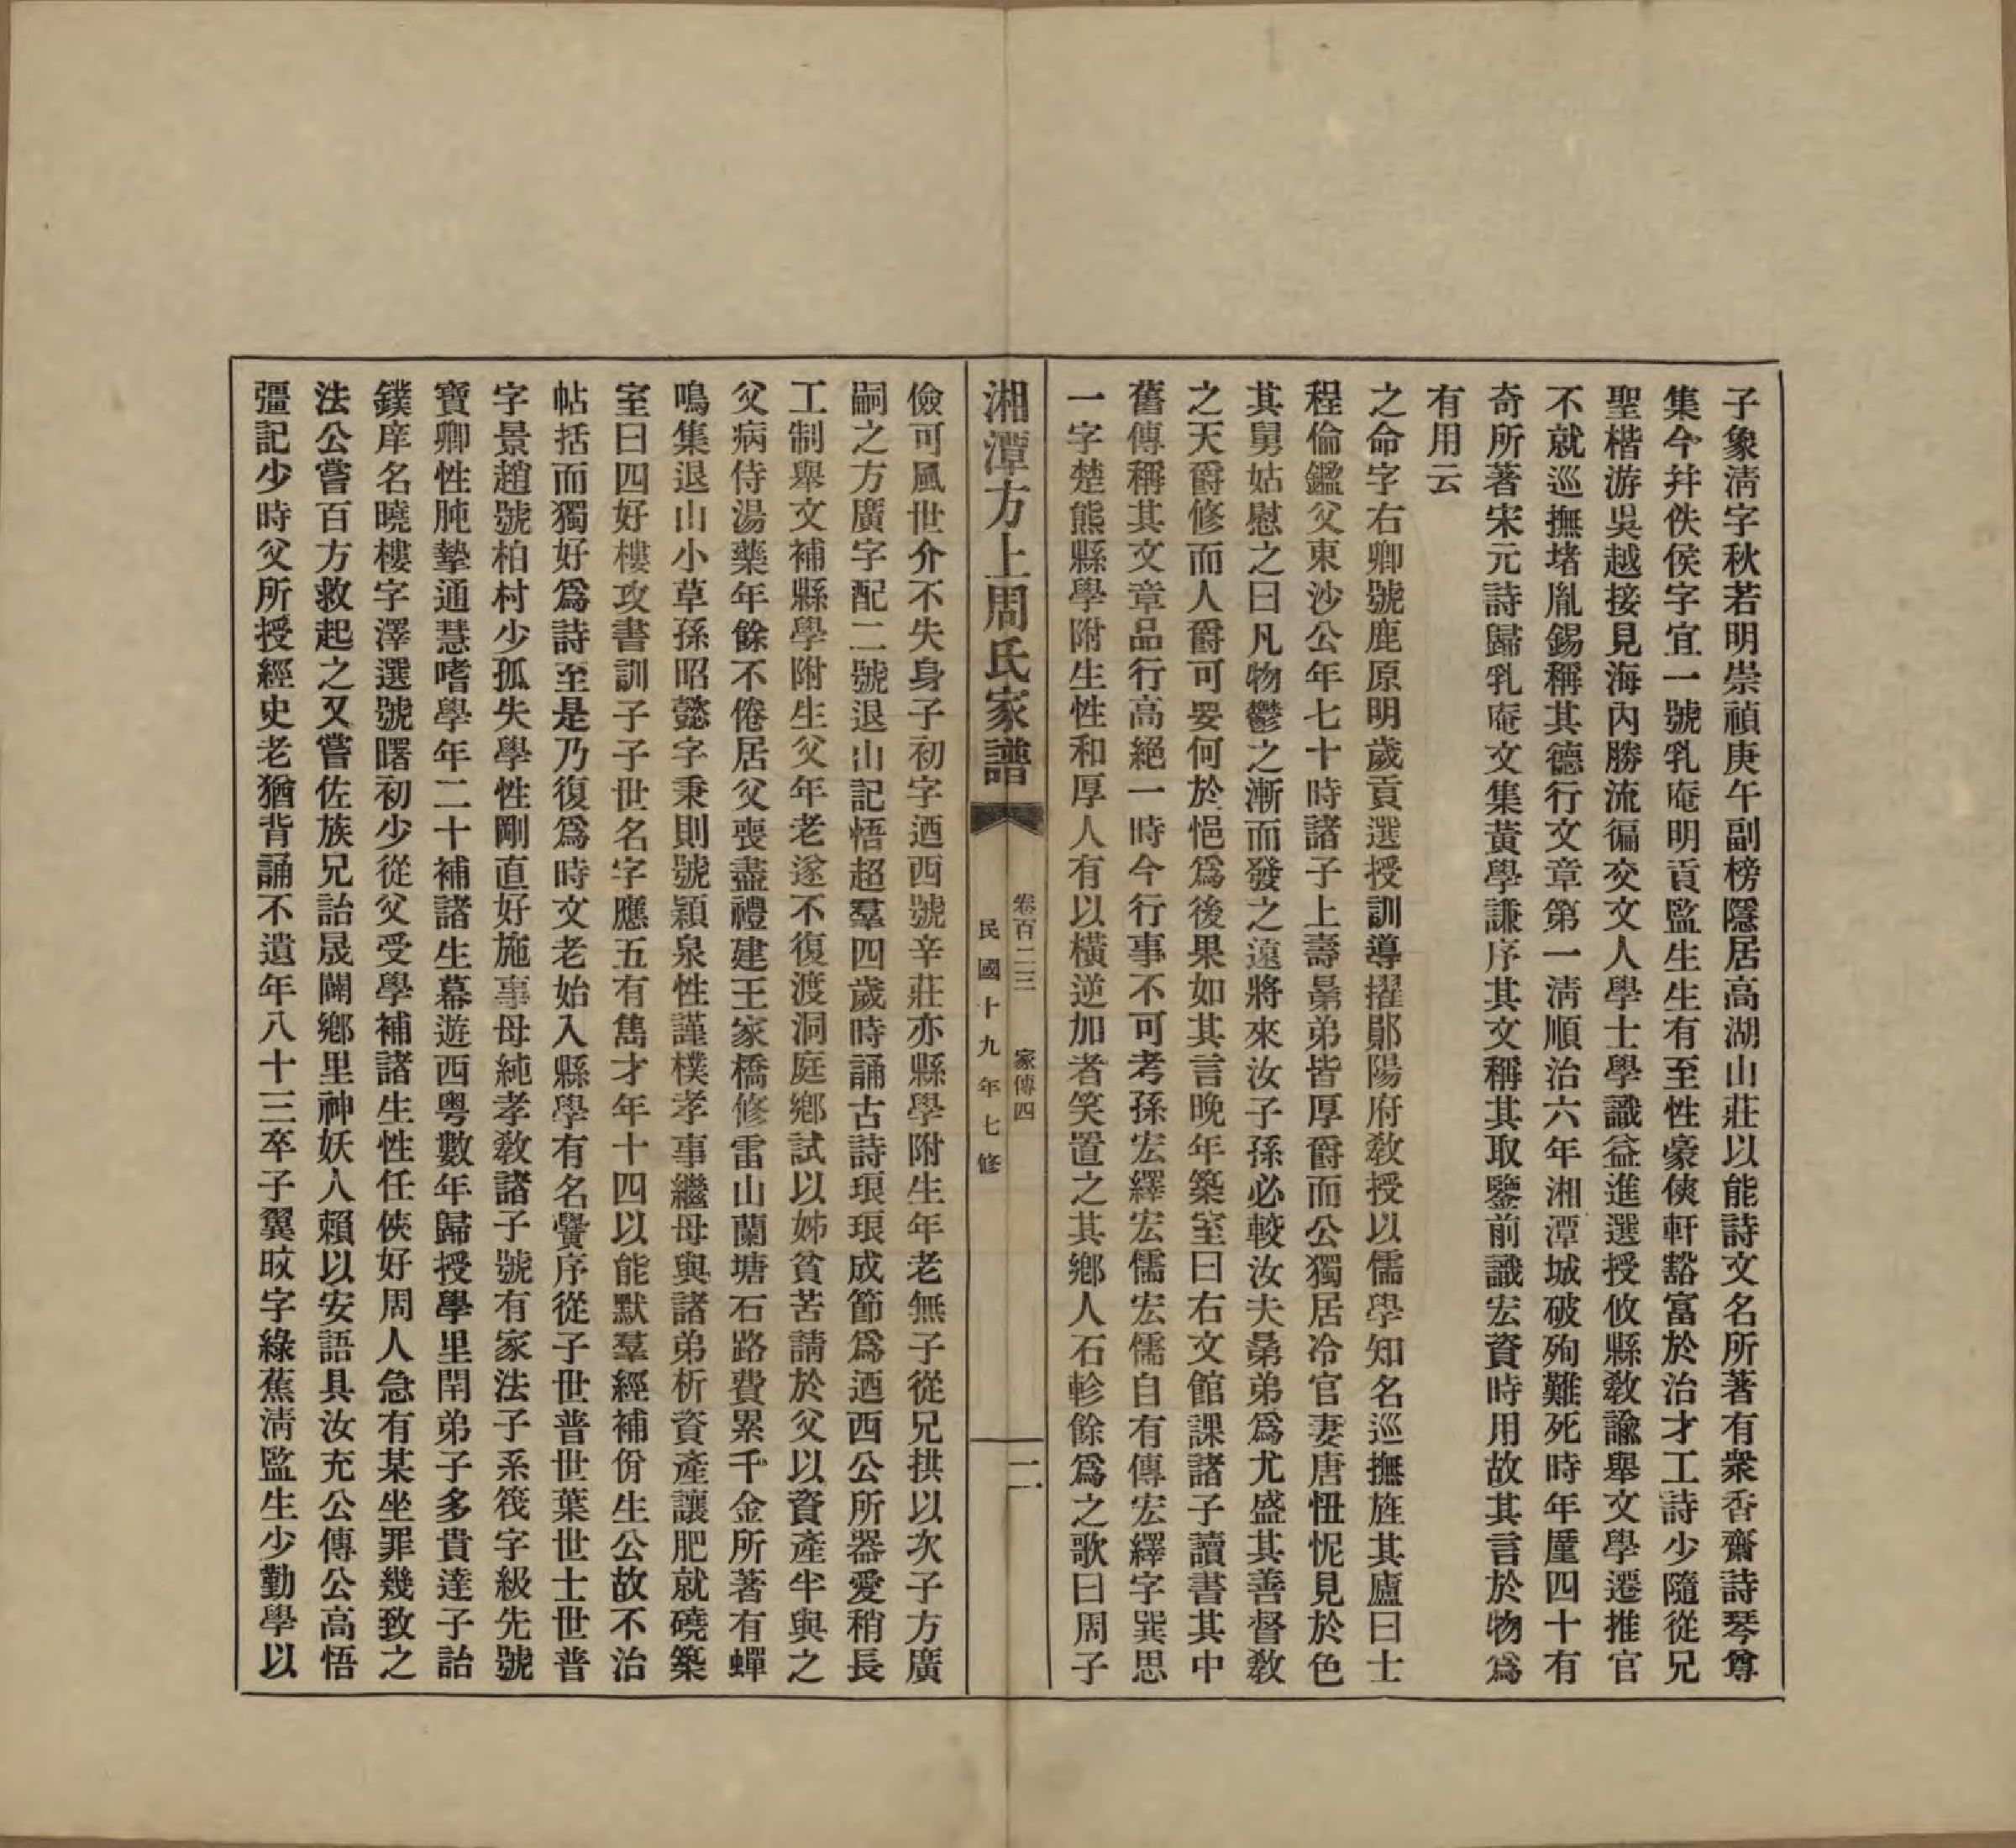 子象淸字秋若明崇禎庚午副榜隱居高湖山莊以能詩文名所著有衆香齋詩琴尊
集今幷佚侯字宜一號乳庵明貢監生生有至性豪俠軒豁富於治才工詩少隨從兄
聖楷游吳越接見海內勝流徧交文人學士學識益進選授攸縣敎諭舉文學遷推官
不就巡撫堵胤錫稱其德行文章第一淸順治六年湘潭城破殉難死時年厪四十有
奇所著宋元詩歸乳庵文集黃學謙序其文稱其取鑒前識宏資時用故其言於物爲
有用云
之命字右卿號鹿原明歲貢選授訓導擢鄖陽府敎授以儒學知名巡撫旌其廬曰士
程倫鑑父東沙公年七十時諸子上壽曑弟皆厚爵而公獨居冷官妻唐忸怩見於色
其舅姑慰之曰凡物鬱之漸而發之遠將來汝子孫必較汝夫曑弟爲尤盛其善督敎
之天爵修而人爵可要何於悒爲後果如其言晚年築室曰右文館課諸子讀書其中
舊傳稱其文章品行高絕一時今行事不可考孫宏繹宏儒宏儒自有傳宏繹字巽思
一字楚熊縣學附生性和厚人有以橫逆加者笑置之其鄉人石軫餘爲之歌曰周子
湘潭方上周氏家譜 卷百二三 家傳四 二
民國十九年七修
儉可風世介不失身子初字迺西號辛莊亦縣學附生年老無子從兄拱以次子方廣
嗣之方廣字配二號退山記悟超羣四歲時誦古詩琅琅成節爲迺西公所器愛稍長
工制舉文補縣學附生父年老遂不復渡洞庭鄉試以姊貧苦請於父以資產半與之
父病侍湯藥年餘不倦居父喪盡禮建王家橋修雷山蘭塘石路費累千金所著有蟬
鳴集退山小草孫昭懿字秉則號穎泉性謹樸孝事繼母與諸弟析資產讓肥就磽築
室曰四好樓攻書訓子子世名字應五有雋才年十四以能默羣經補佾生公故不治
帖括而獨好爲詩至是乃復爲時文老始入縣學有名黌序從子世普世葉世士世普
字景趙號柏村少孤失學性剛直好施事母純孝敎諸子號有家法子系筏字級先號
寶卿性肫摯通慧嗜學年二十補諸生幕遊西粵數年歸授學里閈弟子多貴達子詒
鏷庠名曉樓字澤選號曙初少從父受學補諸生性任俠好周人急有某坐罪幾致之
法公嘗百方救起之又嘗佐族兄詒晟闢鄉里神妖人賴以安語具汝充公傳公高悟
彊記少時父所授經史老猶背誦不遺年八十三卒子翼旼字綠蕉淸監生少勤學以